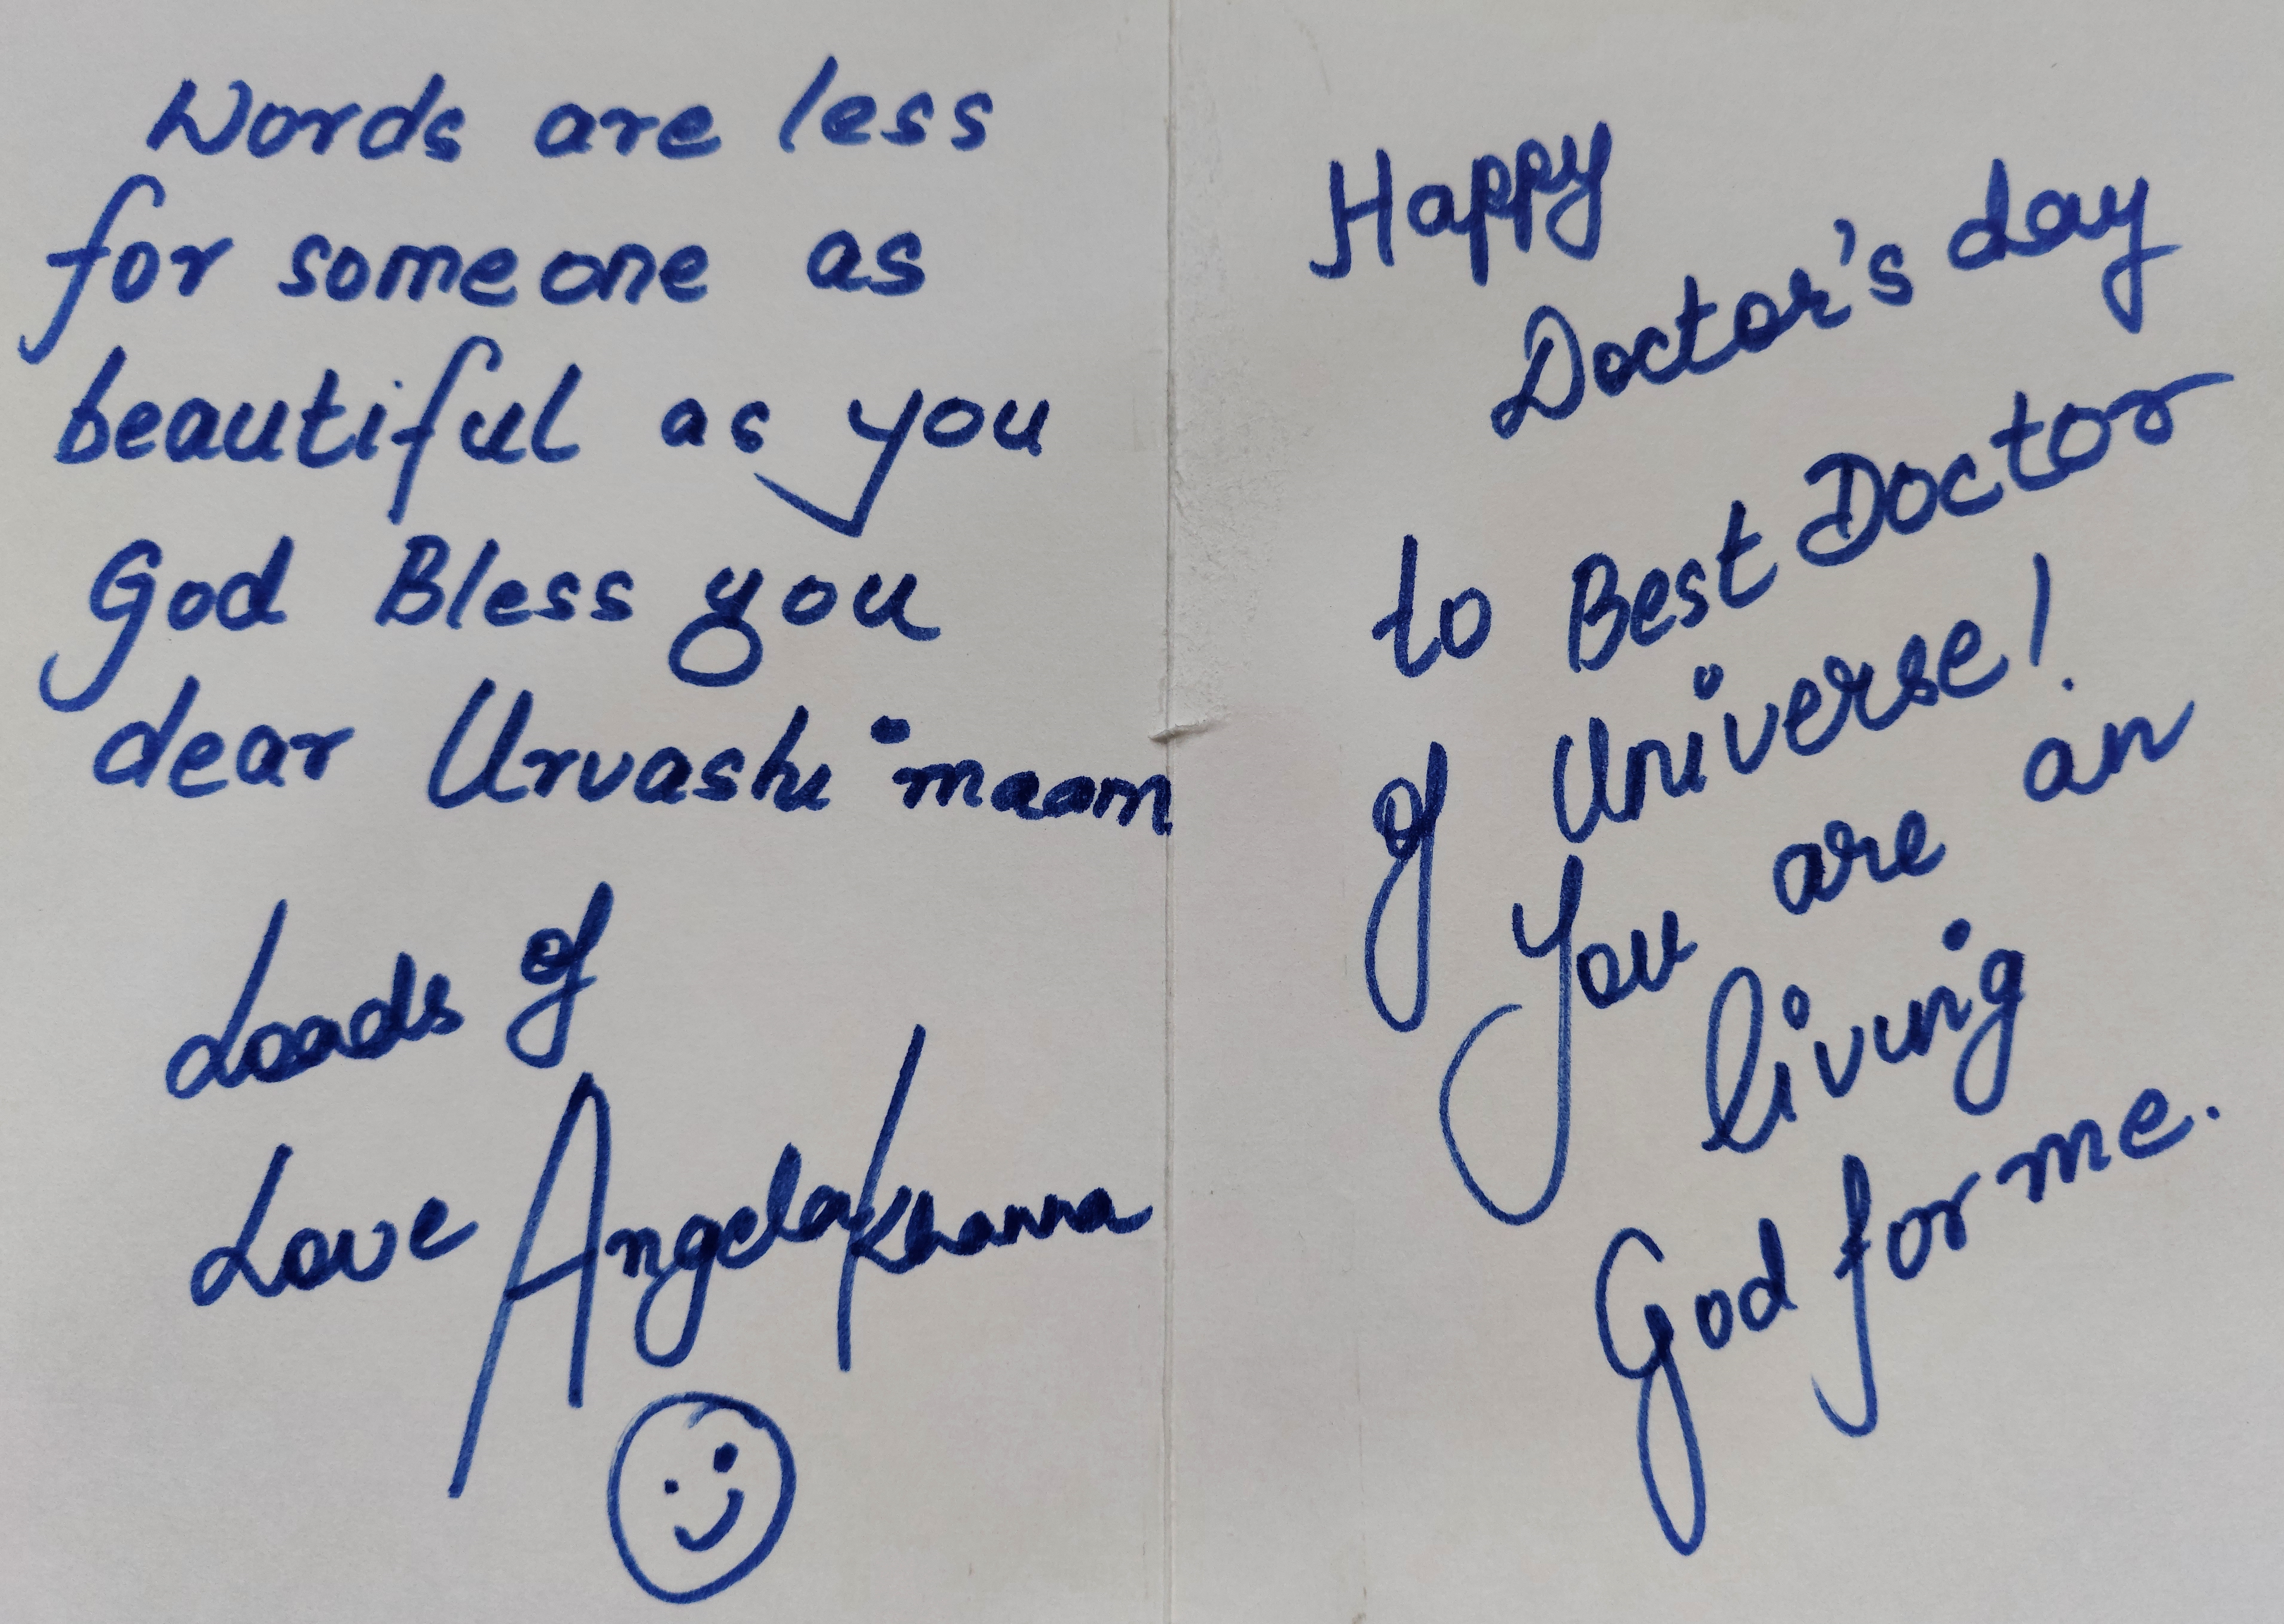 Words are less
for someone as
beautiful as you
God Bless you
dear Urvashi maam
Loads of
Love Angela Khanna
Happy
Doctor's day
to Best Doctor
of Universe!
You are an
living
God for me.